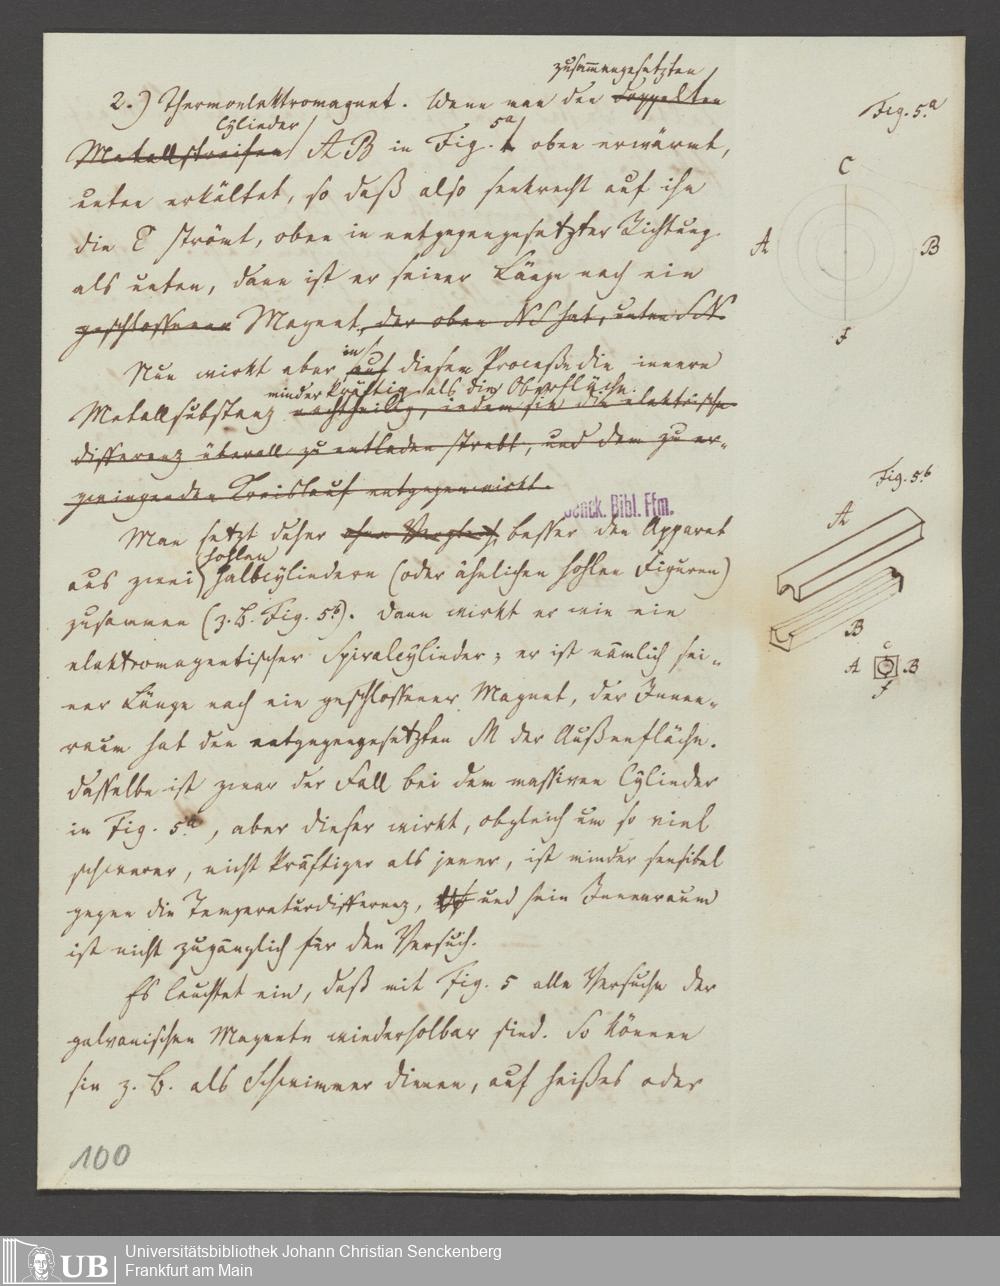 zusammengesetzten
2.) Thermoelektromagnet. Wenn man den doppelten
Cylinder
Metallstreifen AB in Fig. 5a oben erwärmt,
unten erkältet, so daß also senkrecht auf ihn
die E strömt, oben in entgegengesetzter Richtung
als unten, dann ist er seiner Länge nach ein
geschlossener Magnet, der oben NS hat, unten SN.
Nun wirkt aber in auf diesem Processe die innere
minder kräftig als die Oberfläche.
Metallsubstanz nachtheilig, indem sie die elektrische
Differenz überall zu entladen strebt, und dem zu er-
zwingenden Kreislauf entgegenwirkt.
Man setzt daher ohne Vergleich besser den Apparat
hohlen
aus zwei Halbcylindern (oder ähnlichen hohlen Figuren)
zusammen (z. B. Fig. 5b). Dann wirkt er wie ein
elektromagnetischer Spiralcylinder; er ist nämlich sei-
ner Länge nach ein geschlossener Magnet, der Innen-
raum hat den entgegengesetzten M der Außenfläche.
Dasselbe ist zwar der Fall bei dem massiven Cylinder
in Fig. 5.a, aber dieser wirkt, obgleich um so viel
schwerer, nicht kräftiger als jener, ist minder sensibel
gegen die Temperaturdifferenz, und sein Innenraum
ist nicht zugänglich für den Versuch.
Es leuchtet ein, daß mit Fig. 5 alle Versuche der
galvanischen Magnete wiederholbar sind. So können
sie z. B. als Schwimmer dienen, auf heißes oder
100
Fig. 5.a
C
A
B
F
Fig. 5.b
A
B
C
A
B
F
Senck. Bibl. Ffm.
UB
Universitätsbibliothek Johann Christian Senckenberg
Frankfurt am Main